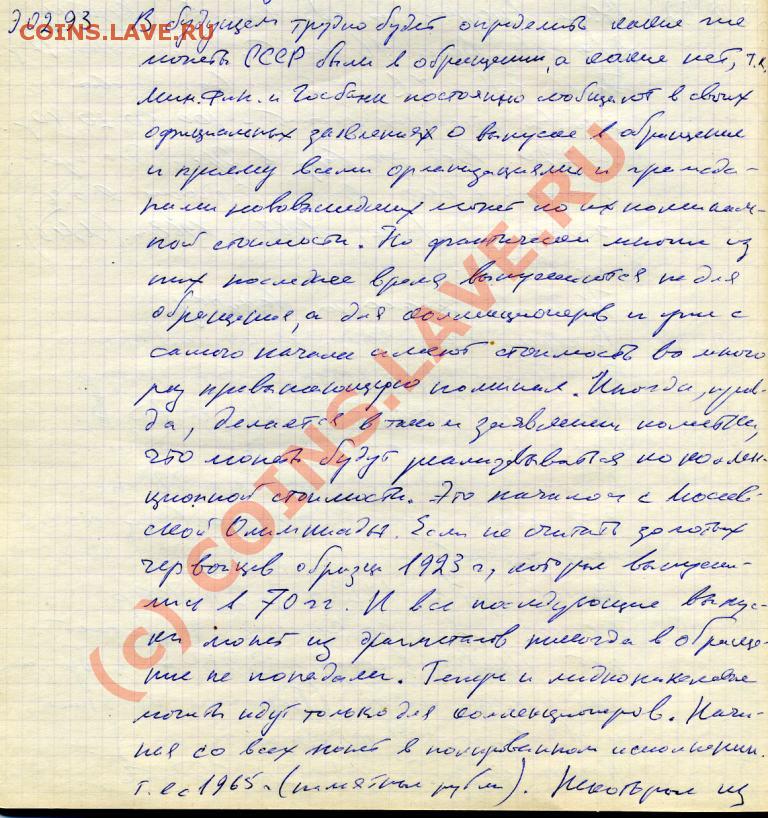 COINS.LAVE.RU
30.02.93 В будущем трудно будет определить какие же
монеты СССР были в обращении, а какие нет, т.к.
Мин.Фин. и Госбанк постоянно сообщают в своих
официальных заявлениях о выпуске в обращение
и приему всеми организациями и гражда-
нами нововышедших монет по их номиналь-
ной стоимости. Но фактически многие из
них последнее время выпускаются не для
обращения, а для коллекционеров и уже с
самого начала имеют стоимость во много
раз превышающую номинал. Иногда, прав-
да, делается в таком заявлении пометка,
что монеты будут реализовываться по коллек-
ционной стоимости. Это началось с Москов-
ской Олимпиады. Если не считать золотых
червонцев образца 1923 г, которые выпуска-
лись в 70 гг. И все последующие выпус-
ки монет из драгметаллов никогда в обраще-
ние не попадали. Теперь и медноникелевые
монеты идут только для коллекционеров. Начи-
ная со всех монет в полированном исполнении.
т.е с 1965 г (памятные рубли). Некоторые из
(c) COINS.LAVE.RU